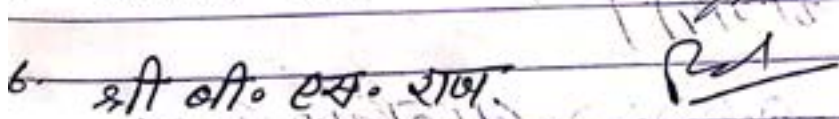 6. श्री बी. एस. राज.